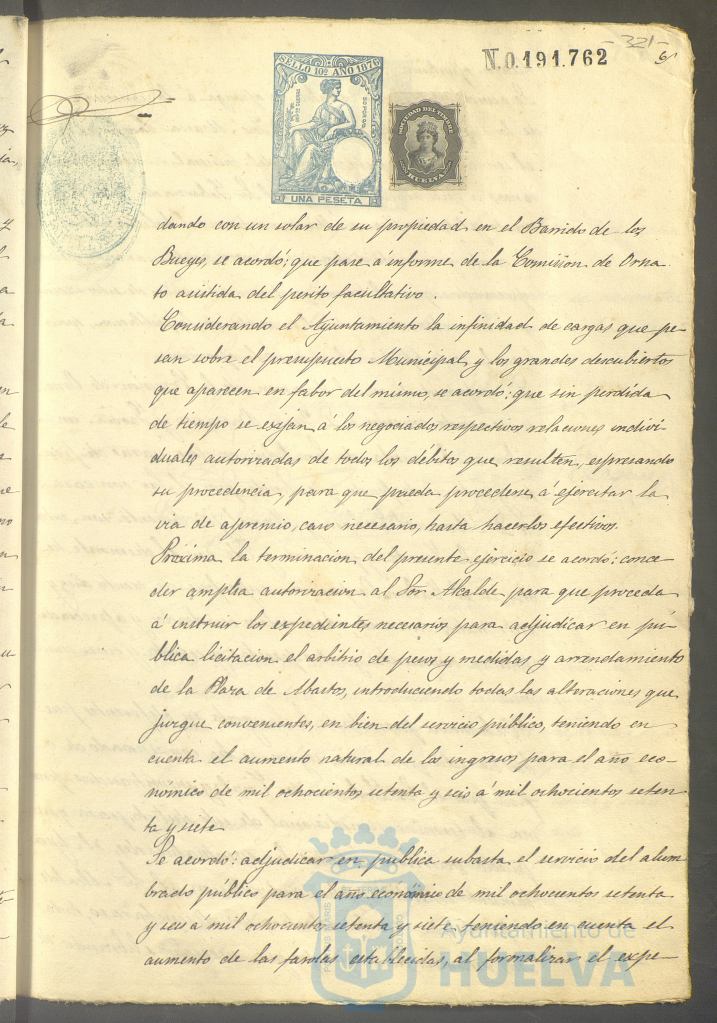 321
6
N.0.191.762
SELLO 10º AÑO 1876
UNA PESETA
SOCIEDAD DEL TIMBRE
HUELVA
dando con un solar de su propiedad en el Barrido de los
Bueyes, se acordó; que pase á informe de la Comision de Orna
to asistida del perito facultativo.
Considerando el Ayuntamiento la infinidad de cargas que pe-
san sobre el presupuesto Municipal y los grandes descubiertos
que aparecen en fabor del mismo, se acordó; que sin perdida
de tiempo se exijan á los negociados respectivos relaciones indivi-
duales autorizadas de todos los débitos que resulten, espresando
su procedencia, para que pueda procederse á ejercitar la
via de apremio, caso necesario, hasta hacerlos efectivos.
Próxima la terminacion del presente ejercicio se acordó: conce-
der amplia autorizacion al Sor Alcalde para que proceda
á instruir los expedientes necesarios para adjudicar en pú-
blica licitacion el arbitrio de pesos y medidas y arrendamiento
de la Plaza de Abastos, introduciendo todas las alteraciones que
juzgue convenientes, en bien del servicio público, teniendo en
cuenta el aumento natural de los ingresos para el año eco-
nómico de mil ochocientos setenta y seis á mil ochocientos seten-
ta y siete
Se acordó: adjudicar en publica subasta el servicio del alum
brado público para el año económico de mil ochocientos setenta
y seis á mil ochocientos setenta y siete teniendo en cuenta el
aumento de las farolas establecidas, al formalizar el expe-
Ayuntamiento de
HUELVA